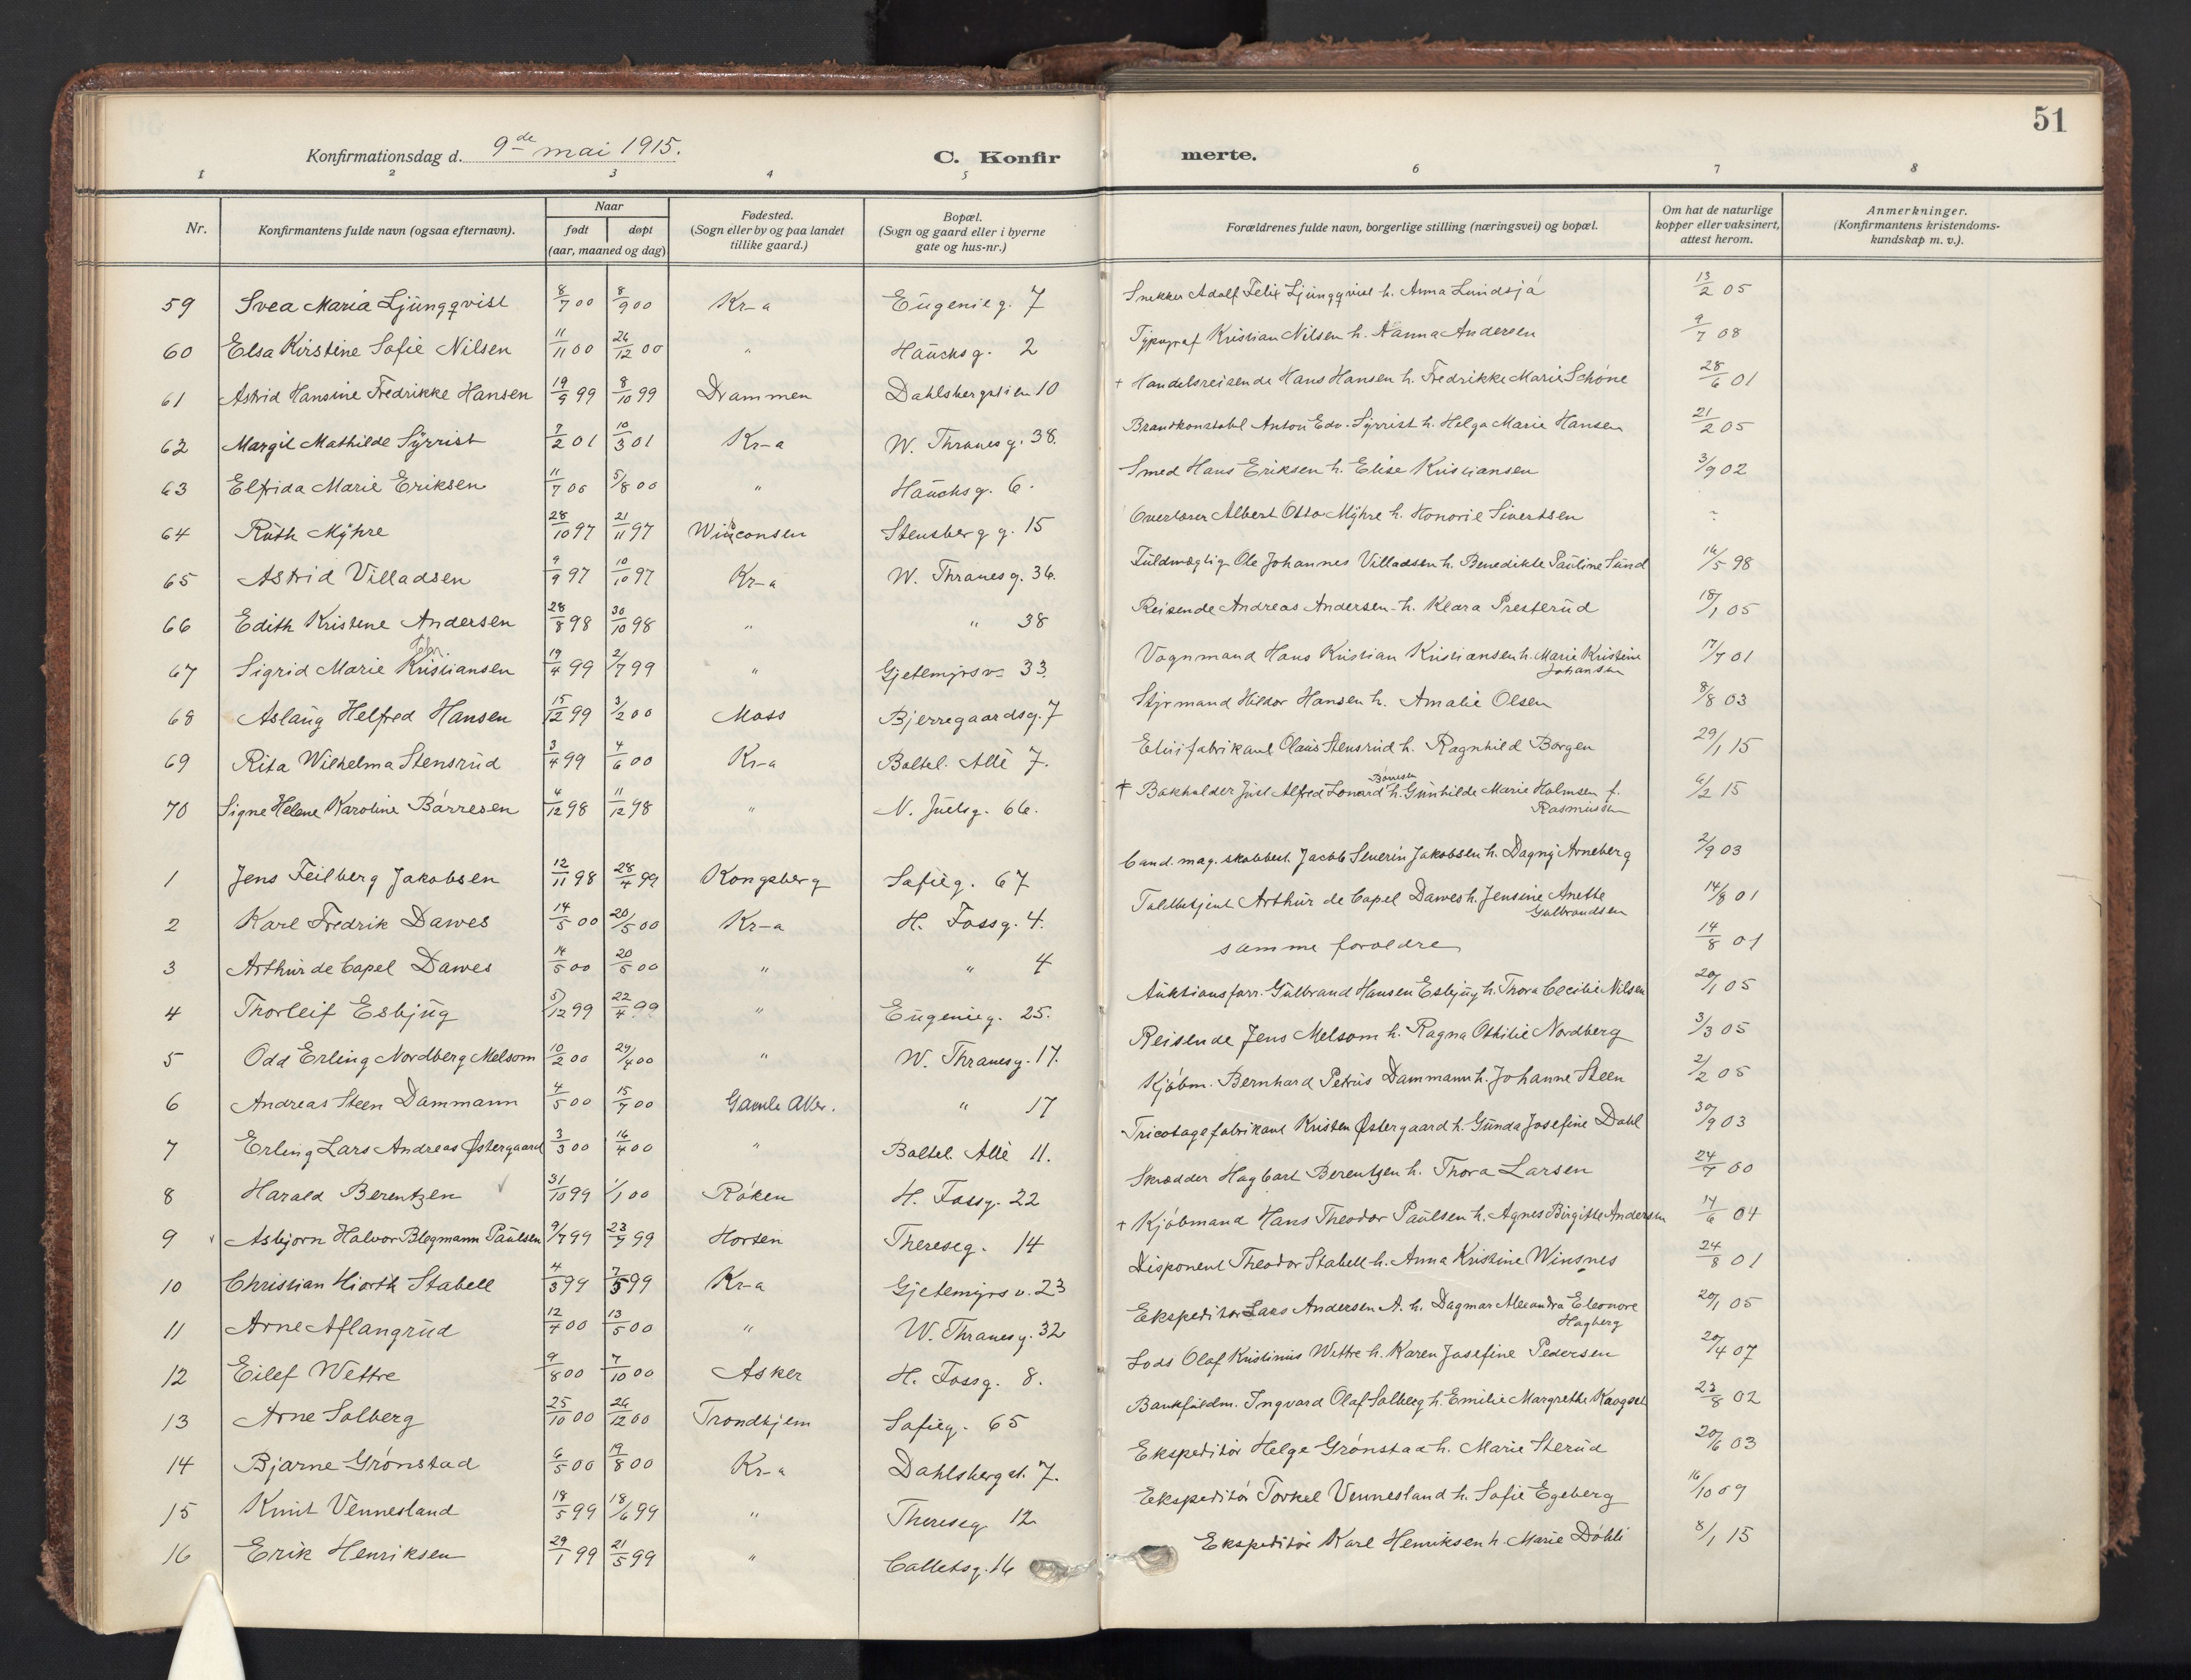 51
Konfirmationsdag d. 9de mai 1915.
C. Konfir merte.
1 2 3 4 5 6 7 8
Nr.
Konfirmantens fulde navn (ogsaa efternavn).
Naar
født døpt
(aar, maaned og dag)
Fødested.
(Sogn eller by og paa landet
tillike gaard.)
Bopæl.
(Sogn og gaard eller i byerne
gate og hus-nr.)
Forældrenes fulde navn, borgerlige stilling (næringsvei) og bopæl.
Om hat de naturlige
kopper eller vaksinert,
attest herom.
Anmerkninger.
(Konfirmantens kristendoms-
kundskap m. v.).
59 Svea Maria Ljungqvist 8/7 00 8/9 00 Kr-a Eugenieg. 7 Snekker Adolf Felix Ljungqvist h. Anna Lundsjö 13/2 05
60 Elsa Kirstine Sofie Nilsen 11/11 00 26/12 00 " Hauchs g. 2 Typograf Kristian Nilsen h. Nanna Andersen 9/7 08
61 Astrid Hansine Fredrikke Hansen 19/9 99 8/10 99 Drammen Dahlsbergstien 10 + Handelsreisende Hans Hansen h. Fredrikke Marie Schøne 28/6 01
62 Margit Mathilde Syrrist 7/2 01 10/3 01 Kr-a W. Thranes g. 38. Brandkonstabel Anton Edv. Syrrist h. Helga Marie Hansen 21/2 05
63 Elfrida Marie Eriksen 11/7 00 5/8 00 " Hauchs g. 6. Smed Hans Eriksen h. Elise Kristiansen 3/9 02
64 Ruth Myhre 28/10 97 21/11 97 Wisconsen Stensberg g. 15 Overlærer Albert Otto Myhre h. Honorie Sivertsen
65 Astrid Villadsen 9/9 97 10/10 97 Kr-a W. Thranes g. 36. Fuldmægtig Ole Johannes Villadsen h. Benedikte Pauline Sund 16/5 98
66 Edith Kristene Andersen 28/8 98 30/10 98 " " 38 Reisende Andreas Andersen h. Klara Presterud 18/1 05
Chr.
67 Sigrid Marie Kristiansen 19/4 99 2/7 99 " Gjetemyrsv. 33. Vognmand Hans Kristian Kristiansen h. Marie Kristine
Johansen 17/7 01
68 Aslaug Helfred Hansen 15/12 99 3/2 00 Moss Bjerregaardsg. 7 Styrmand Hildor Hansen h. Amalie Olsen 8/8 03
69 Rita Wilhelma Stensrud 3/4 99 4/6 00 Kr-a Boltel. Allé 7. Etuifabrikant Olaus Stensrud h. Ragnhild Borgen 29/1 15
70 Signe Helene Karoline Børresen 4/12 98 11/12 98 " N. Juelsg. 66. † Bokholder Just Alfred Lonard Børresen h. Gunhilde Marie Holmsen f.
Rasmussen 6/2 15
1 Jens Feilberg Jakobsen 12/11 98 28/4 99 Kongsberg Sofieg. 67 Cand. mag. skolebest. Jacob Severin Jakobsen h. Dagny Arneberg 2/9 03
2 Karl Fredrik Dawes 14/5 00 20/5 00 Kr-a H. Fossg. 4. Toldbetjent Arthur de Capel Dawes h. Jensine Anette
Gulbrandsen 14/8 01
3 Arthur de Capel Dawes 14/5 00 20/5 00 " " 4 samme forældre 14/8 01
4 Thorleif Esbjug 5/12 99 22/4 99 " Eugenieg. 25. Auktionsforr. Gulbrand Hansen Esbjug h. Thora Cecilie Nilsen 20/1 05
5 Odd Erling Nordberg Melsom 10/2 00 29/4 00 " W. Thranesg. 17. Reisende Jens Melsom h. Ragna Othilie Nordberg 3/3 05
6 Andreas Steen Dammann 4/5 00 15/7 00 Gamle Aker. " 17 Kjøbm. Bernhard Petrus Dammann h. Johanne Steen 2/2 05
7 Erling Lars Andreas Østergaard 3/3 00 16/4 00 " Boltel. Allé 11. Tricotagefabrikant Kristen Østergaard h. Gunda Josefine Dahl 30/9 03
8 Harald Berentzen 31/10 99 1/1 00 Røken H. Fossg. 22 Skrædder Hagbart Berentzen h. Thora Larsen 24/7 00
9 Asbjørn Halvor Blegmann Paulsen 9/7 99 23/9 99 Horten Thereseg. 14 + Kjøbmand Hans Theodor Paulsen h. Agnes Birgitte Andersen 14/6 04
10 Christian Hiorth Stabell 4/3 99 7/5 99 Kr-a Gjetemyrs v. 23 Disponent Theodor Stabell h. Anna Kristine Winsnes 24/8 01
11 Arne Aflangrud 12/4 00 13/5 00 " W. Thranes g. 32 Ekspeditør Lars Andersen A. h. Dagmar Alexandra Eleonore
Hagberg 20/1 05
12 Eilef Wettre 9/8 00 7/10 00 Asker H. Fossg. 8. Lods Olaf Kristinius Wettre h. Karen Josefine Pedersen 20/4 07
13 Arne Solberg 25/10 00 26/12 00 Trondhjem Sofieg. 65 Bankfuldm. Ingvard Olaf Solberg h. Emilie Margrethe 23/8 02
14 Bjarne Grønstad 6/5 00 19/8 00 Kr-a Dahlsbergst. 7. Ekspeditør Helge Grønstad h. Marie Sterud 20/6 03
15 Knut Vennesland 18/5 99 18/6 99 " Thereseg 12 Ekspeditør Torkel Vennesland h. Sofie Egeberg 16/10 09
16 Erik Henriksen 29/1 99 21/5 99 " Calletsg. 16 Ekspeditør Karl Henriksen h. Marie Døhli 8/1 15